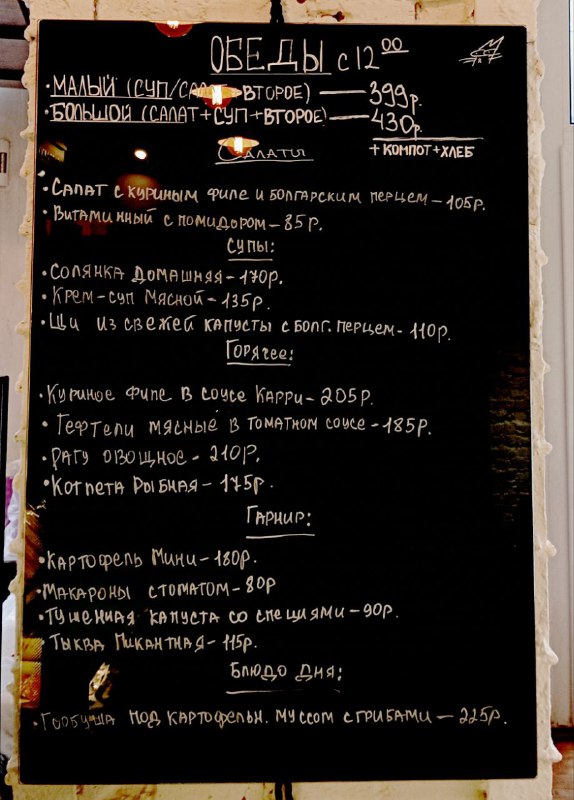 ОБЕДЫ с 12 00
• МАЛЫЙ (СУП/САЛАТ+ВТОРОЕ) — 399р.
• БОЛЬШОЙ (САЛАТ+СУП+ВТОРОЕ) — 430р.
+ КОМПОТ+ХЛЕБ
САЛАТЫ
• САЛАТ С КУРИНЫМ ФИЛЕ И БОЛГАРСКИМ ПЕРЦЕМ – 105р.
• ВИТАМИННЫЙ С ПОМИДОРОМ – 85р.
СУПЫ:
• СОЛЯНКА ДОМАШНЯЯ – 170р.
• КРЕМ-СУП МЯСНОЙ – 135р.
• ЩИ ИЗ СВЕЖЕЙ КАПУСТЫ С БОЛГ. ПЕРЦЕМ – 110р.
ГОРЯЧЕЕ:
• КУРИНОЕ ФИЛЕ В СОУСЕ КАРРИ – 205р.
• ТЕФТЕЛИ МЯСНЫЕ В ТОМАТНОМ СОУСЕ – 185р.
• РАГУ ОВОЩНОЕ – 210р.
• КОТЛЕТА РЫБНАЯ – 175р.
ГАРНИР:
• КАРТОФЕЛЬ МИНИ – 180р.
• МАКАРОНЫ С ТОМАТОМ – 80р
• ТУШЕННАЯ КАПУСТА СО СПЕЦИЯМИ – 90р.
• ТЫКВА ПИКАНТНАЯ – 115р.
БЛЮДО ДНЯ:
• ГОРБУША ПОД КАРТОФЕЛЬН. МУССОМ С ГРИБАМИ – 225р.